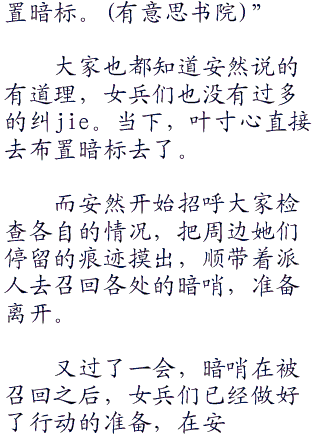 置暗标。(有意思书院)”
大家也都知道安然说的
有道理，女兵们也没有过多
的纠jie。当下，叶寸心直接
去布置暗标去了。
而安然开始招呼大家检
查各自的情况，把周边她们
停留的痕迹摸出，顺带着派
人去召回各处的暗哨，准备
离开。
又过了一会，暗哨在被
召回之后，女兵们已经做好
了行动的准备，在安